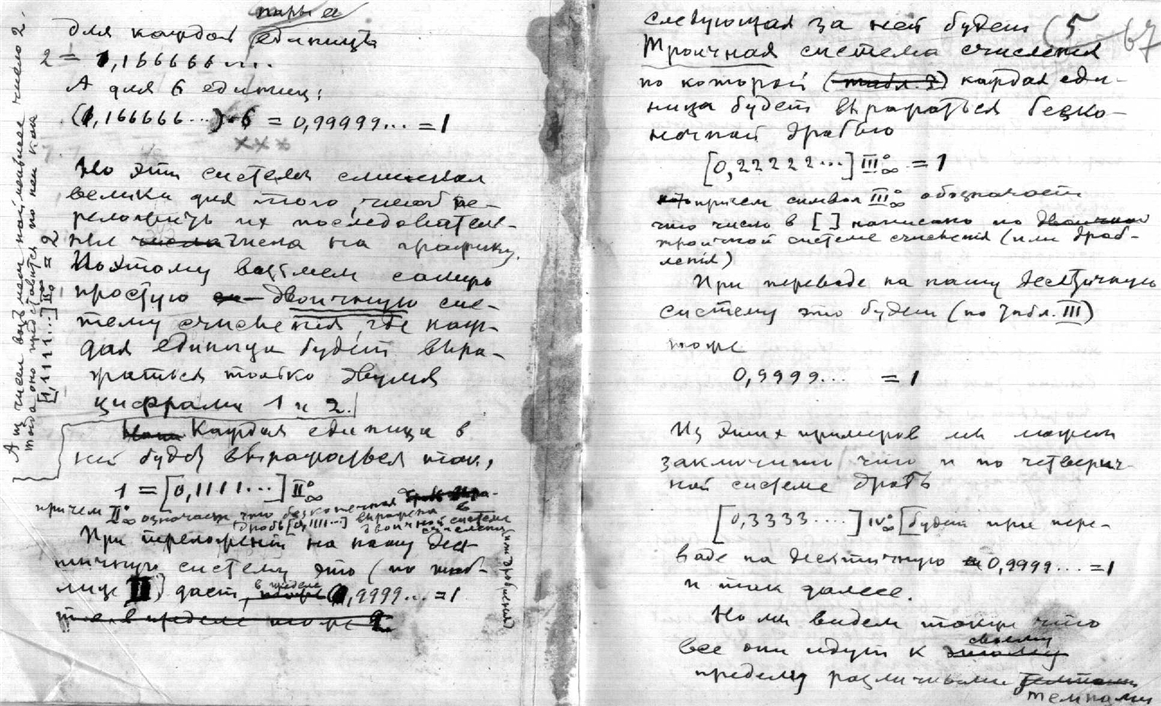 пары а
для каждой единицы
2 = 1,166666....
А для 6 единиц:
(1,166666...)·6 = 0,99999... = 1
×××
Но эти системы слишком
велики для того чтоб пе-
реложить их последователь-
ные числа на графику.
Поэтому возьмем самую
простую двоичную сис-
тему счисления, где каж-
дая единица будет выра-
жаться только двумя
цифрами 1 и 2.
Каждая единица в
ней будет выражаться так,
1 = [0,1111...] II°∞
причем II°∞ означает что безконечная
дробь [0,1111...] выражена в
двоичной системе
счисления
При переложении на нашу деся-
тичную систему это (по таб-
лице II) даст, в пределе 0,9999... = 1
А из чисел возьмем наименьшее число 2.
тогда оно представится по ней как
[1,1111...] II°∞ = 2
следующая за ней будет
5-67
Троичная система счисления
по которой (табл. 3) каждая еди-
ница будет выражаться беско-
нечной дробью
[0,22222...] III°∞ = 1
причем символ III°∞ обозначает
что число в [ ] написано по двоичной
троичной системе счисления (или дроб-
ления)
При переводе на нашу десятичную
систему это будет (по табл. III)
тоже
0,9999... = 1
Из этих примеров мы можем
заключить что и по четверич-
ной системе дробь
[0,3333....] IV°∞ [будет при пере-
воде на десятичную 0,9999... = 1
и так далее.
Но мы видем также что
все они идут к этому
своему
пределу различными
темпами